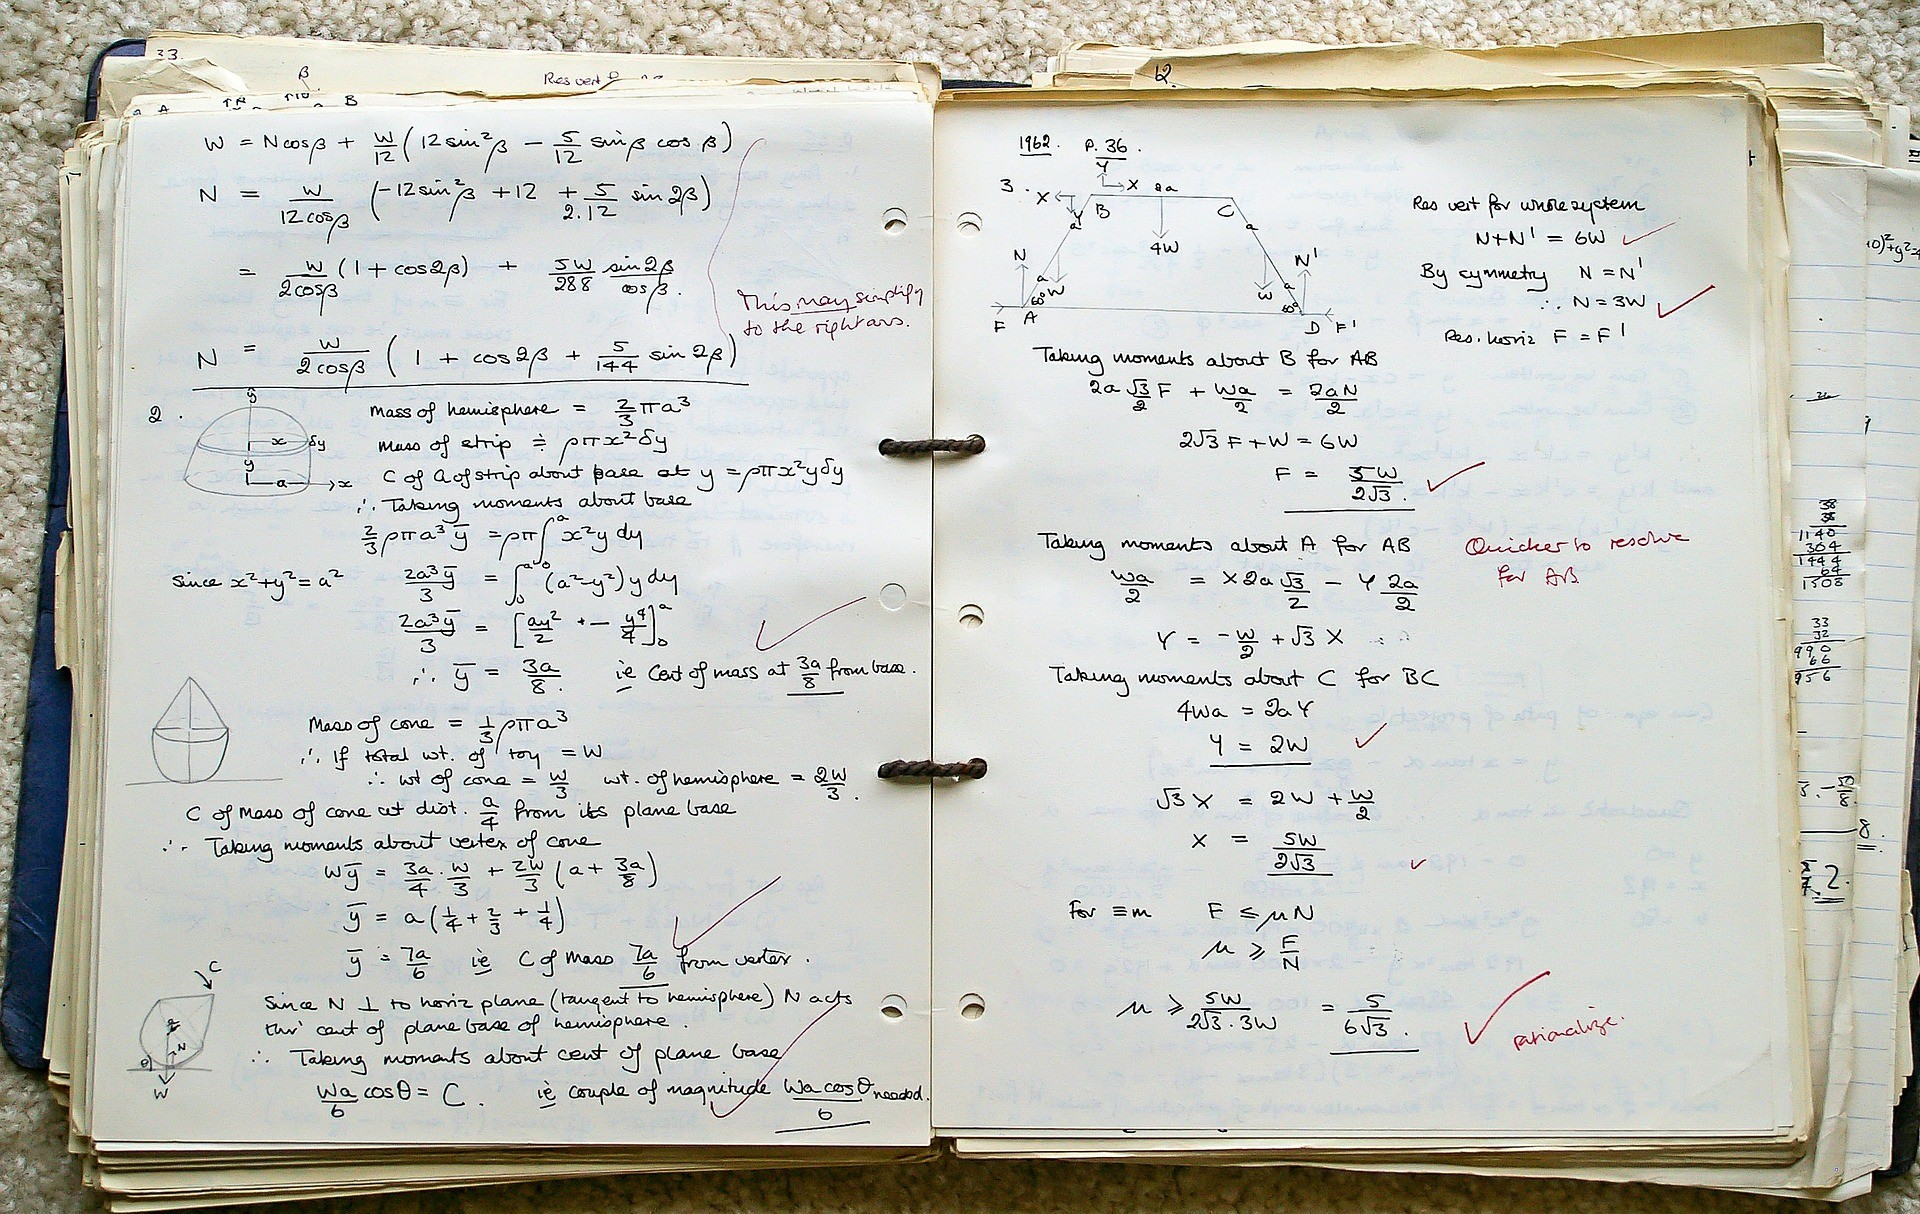 33.
β
Res vert
A
B
W = N cosβ + W/12 (12 sin²β − 5/12 sinβ cos β)
N = W/12cosβ (−12sin²β + 12 + 5/2.12 sin 2β)
= W/2cosβ (1 + cos2β) + 5W/288 sin2β/cosβ.
This may simplify
to the right ans.
N = W/2cosβ (1 + cos 2β + 5/144 sin 2β)
2.
y
x
δy
y
a
x
Mass of hemisphere = 2/3 πa³
Mass of strip ≑ ρπx²δy
C of G of strip about base at y = ρπx²yδy
∴ Taking moments about base
2/3 ρπa³ȳ = ρπ∫₀ᵃ x²y dy
Since x²+y²=a² 2a³ȳ/3 = ∫₀ᵃ (a²−y²) y dy
2a³ȳ/3 = [ay²/2 − y⁴/4]₀ᵃ
∴ ȳ = 3a/8. ie Cent of mass at 3a/8 from base.
Mass of cone = 1/3 ρπa³
∴ If total wt. of toy = W
∴ wt of cone = W/3 wt. of hemisphere = 2W/3.
C of Mass of cone at dist. a/4 from its plane base
∴ Taking moments about vertex of cone
Wȳ = 3a/4 . W/3 + 2W/3 (a + 3a/8)
ȳ = a(1/4 + 2/3 + 1/4)
ȳ = 7a/6 ie C of Mass 7a/6 from vertex.
C
N
θ
W
Since N ⊥ to horiz plane (tangent to hemisphere) N acts
thr' cent of plane base of hemisphere.
∴ Taking moments about cent of plane base
Wa/6 cosθ = C. ie couple of magnitude Wa cosθ/6 needed.
12
1962. P. 36.
3.
Y
X
X
2a
Y
B
C
a
a
4W
N
N'
a
W
W
a
60°
60°
F
A
D
F'
Res vert for whole system
N+N' = 6W
By symmetry N = N'
∴ N = 3W
Res. horiz F = F'
Taking moments about B for AB
2a √3/2 F + Wa/2 = 2aN/2
2√3 F + W = 6W
F = 5W/2√3.
Taking moments about A for AB
Quicker to resolve
for AB
Wa/2 = X 2a √3/2 − Y 2a/2
Y = −W/2 + √3 X
Taking moments about C for BC
4Wa = 2aY
Y = 2W
√3 X = 2W + W/2
X = 5W/2√3
for ≡m F ≤ μN
μ ≥ F/N
μ ≥ 5W/2√3 . 3W = 5/6√3.
rationalize.
38
38
1140
304
1444
64
1508
33
32
990
66
956
8.
2.